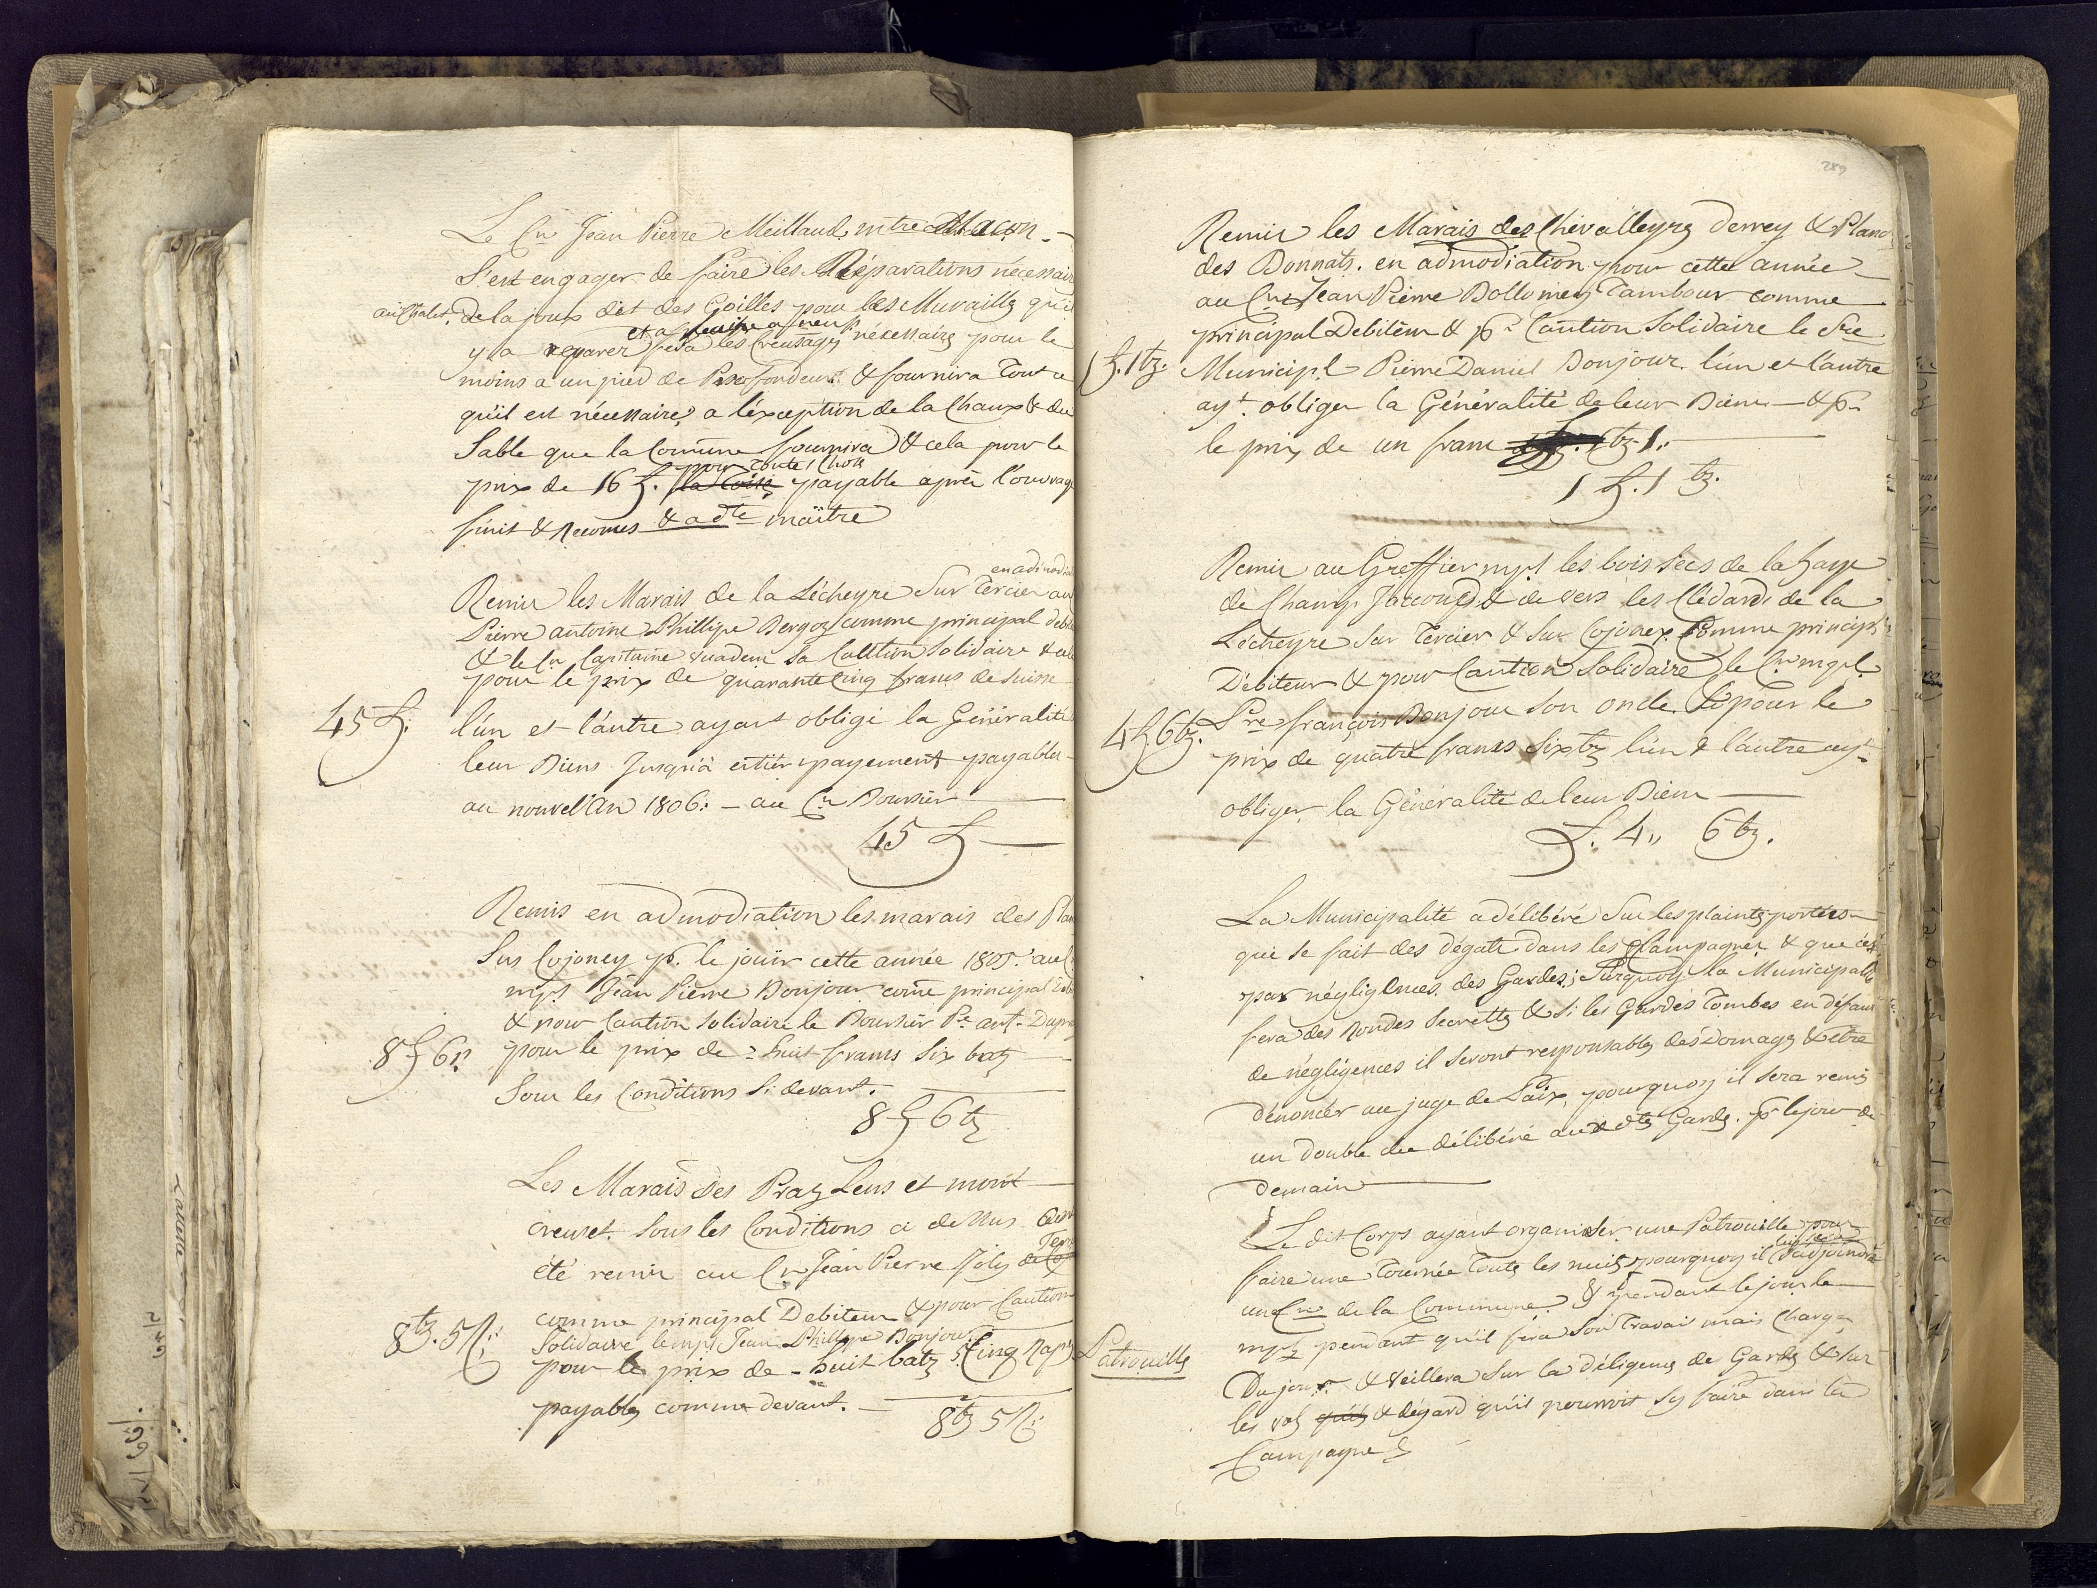 Le Cn Jean Pierre Meillaud mtre Maçon. —
S'est engager de faire les Réparations nécessair
au Chalet. de la joux dit des Goilles pour les Murailles qu'il
et a refaire a neuf
y a reparer fera les Creusages nécessaires pour le
moins a un pied de Profondeur & fournira tout ce
qu'il est nécessaire, a l'éxception de la Chaux & du
Sable que la Commune fournira & cela pour le
pour toute Chose
prix de 16 £. la toise payable après l'ouvrage
finit & Reconus & a dte maître
en admodia
Remis les Marais de la Lécheyre Sur Tercier au
Pierre antoine Phillipe Bergoz comme principal debite
& le Cn Capitaine Sa Caution Solidaire &
pour le prix de quarante Cinq francs de Suisse
45 £. l'un et l'autre ayant obligé la Généralité
leur Biens Jusqu'à entier payement payables
au nouvel'An 1806. — au Cn Boursier
45 £ —
Remis en admodiation les marais des Plan
Sus Cojonex pr. le jouïr cette année 1805. au C
mpl Jean Pierre Bonjour come principal
& pour Caution Solidaire le Boursier Pe ant.
8 £ 6 bz pour le prix de huit francs Six batz
Sous les Conditions Si devant.
8 £ 6 bz
Les Marais des Praz Lens et mont
creuset. Sous les Conditions ci dessus
été remis au Cn Jean Pierre Joly
comme principal Debiteur & pour Caution
8 bz. 5 R: Solidaire le mpl Jean Phillipe Bonjour
pour le prix de — huit batz Cinq Rap
payables comme devant. —
8 bz 5 R:
289
Remis les Marais des Chevalleyres derrey & Plan
des Bonnats. en admodiation pour cette année
au Cn Jean Pierre Dollomey Tambour comme
principal Debiteur & pr Caution Solidaire le Sre
1 £. 1 bz. Municipl Pierre Daniel Bonjour. l'un et l'autre
ayt. obliger la Généralité de leur Biens — & pr
le prix de un franc bz. 1.
1 £. 1 bz.
Remis au Greffier mpl les bois Secs de la haye
de Champ Jaccoud & de vers les Clédards de la
Lécheyre Sur Tercier & Sur Cojonex. Comme principl
Débiteur & pour Caution Solidaire, le Cn mpl
4 £ 6 bz. Pre françois Bonjour Son oncle. & pour le
prix de quatre francs Six bz l'un & l'autre ayt
obliger la Généralité de leur Biens —
£. 4 ,, 6 bz.
La Municipalité a délibéré Sur les plaintes portées
que se fait des dégats dans les Campagnes & que c'est
par négligences des Gardes; Surquoy la Municipalité
fera des Rondes Secrettes & Si les Gardes tombes en défaut
de négligences il Seront responsables des Domages & etre
dénoncer au juge de Paix, pourquoy il sera remis
un double du délibéré aux dts Gardes. pr le jour de
demain —
Le dit Corps ayant organiser une Patrouille pour
faire une tournée toutes les nuits, pourquoy il S'adjoindra
un Cn de la Commune. & pendant le jour le
mpl pendant qu'il fera Son travail mais Charge
Patrouille
Du jour. & veillera Sur la déligence de Gardes & Sur
les vols qu'ils & dégard qu'il pourroit Sy faire dans la
Campagne